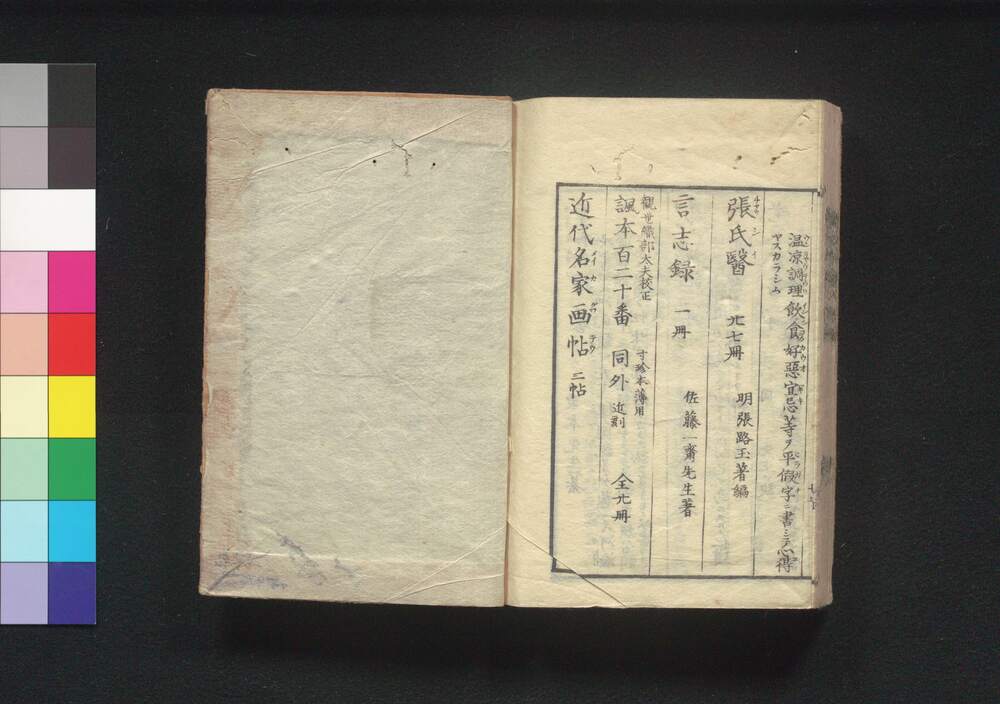 温凉調理飲食好惡宜忌等ヲ平假字ニ書シ心得
ヤスカラシム
張氏醫 廿七冊 明張路玉著編
言志録 一冊 佐藤一齋先生著
觀世織部太夫校正
謳本百二十番 同外 近刻 全廿冊
寸珍本薄用
近代名家画帖 二帖